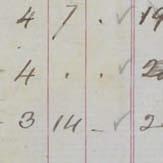 4 7 . ✓ 19
4 . . ✓
3 14 - ✓ 2